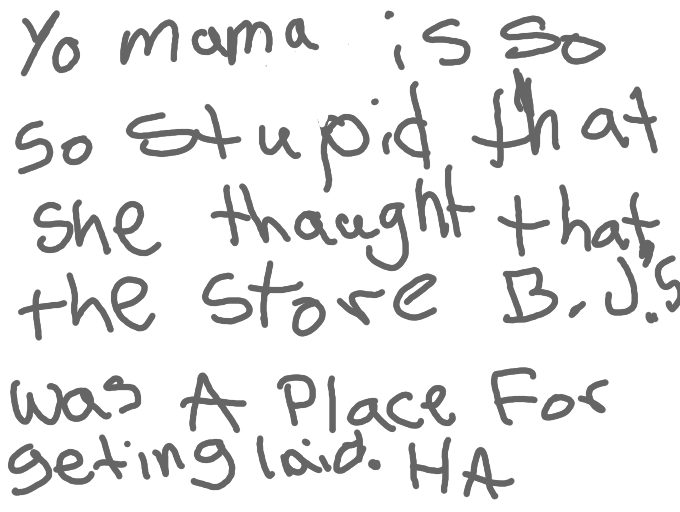 Yo mama is so
so stupid that
she thaught that
the store B.J.'s
was A Place For
geting laid. HA